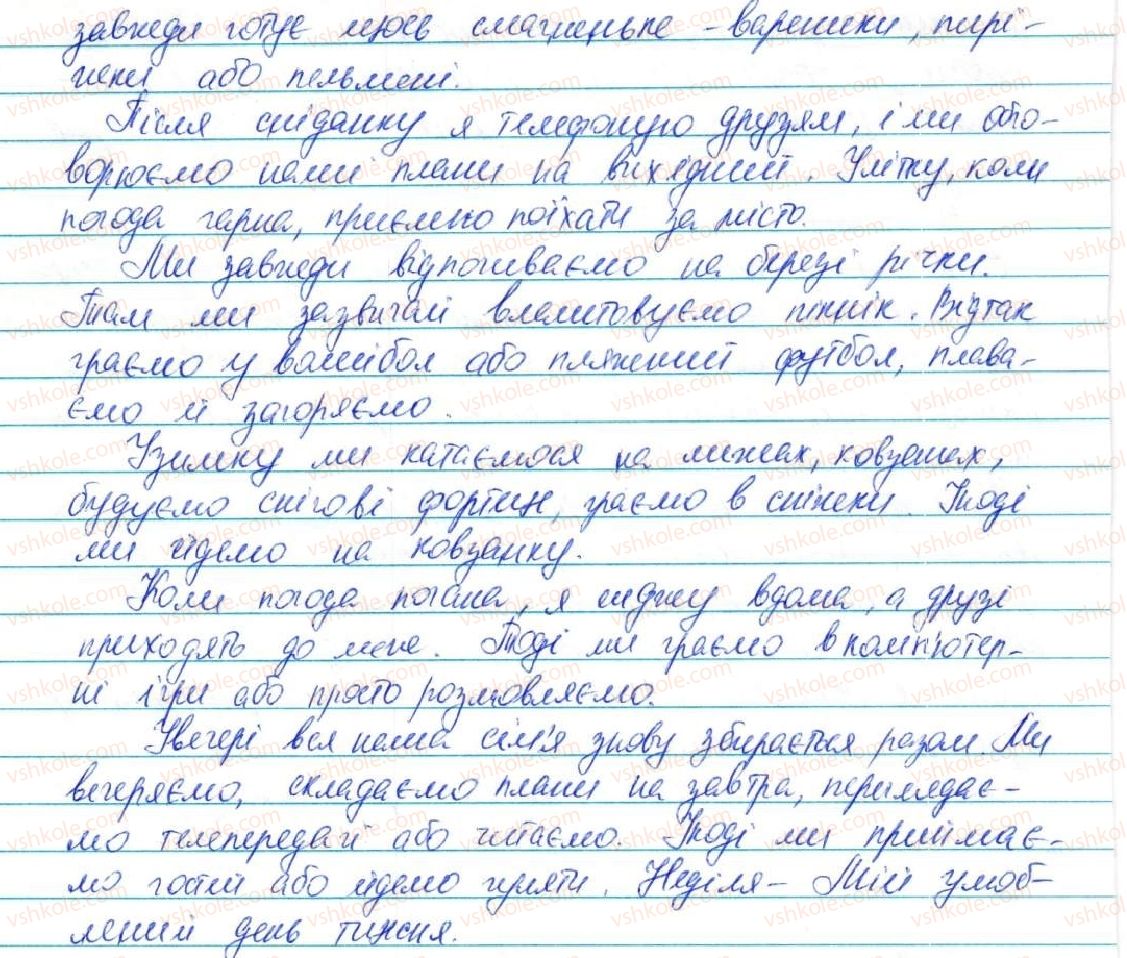 завжди готує щось смачненьке - вареники, пирі-
жки або пельмені.
Після сніданку я телефоную друзям, і ми обго-
ворюємо наші плани на вихідний. Улітку, коли
погода гарна, приємно поїхати за місто.
Ми завжди відпочиваємо на березі річки.
Там ми зазвичай влаштовуємо пікнік. Відтак
граємо у волейбол або пляжний футбол, плава-
ємо й загоряємо.
Узимку ми катаємося на лижах, ковзанах,
будуємо снігові фортеці, граємо в сніжки. Іноді
ми йдемо на ковзанку.
Коли погода погана, я сиджу вдома, а друзі
приходять до мене. Тоді ми граємо в комп'ютер-
ні ігри або просто розмовляємо.
Увечері вся наша сім'я знову збирається разом. Ми
вечеряємо, складаємо плани на завтра, переглядає-
мо телепередачі або читаємо. Іноді ми приймає-
мо гостей або йдемо гуляти. Неділя - Мій улюб-
лений день тижня.